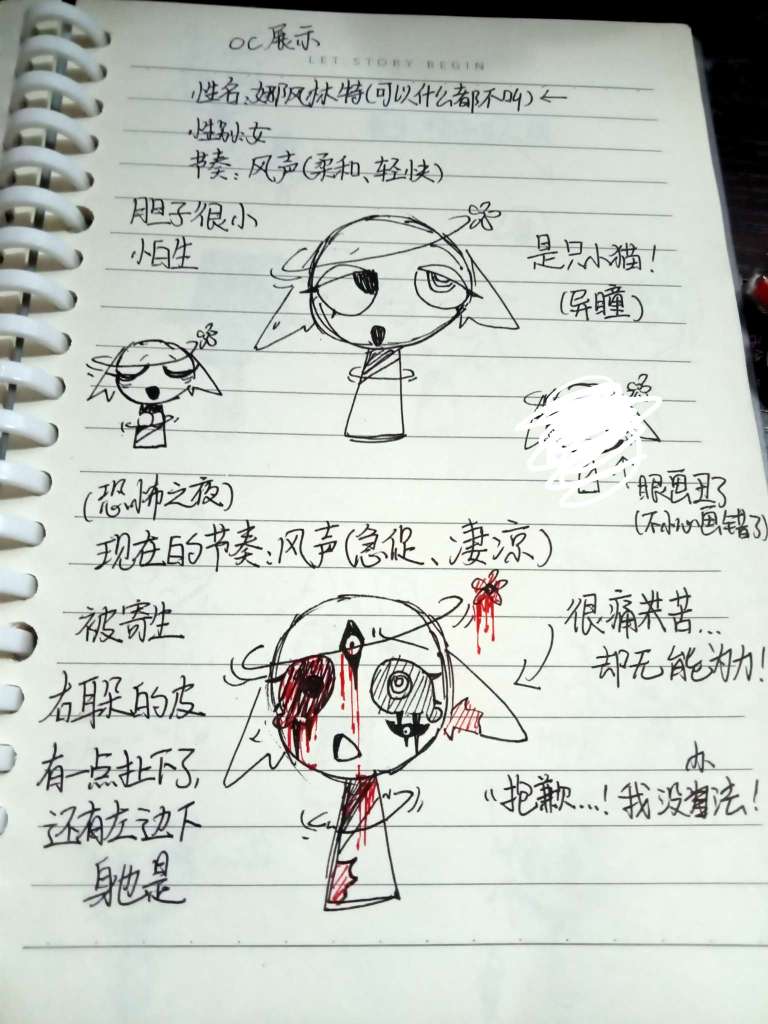 OC展示
LET STORY BEGIN
性名:娜风林特(可以什么都不叫)←
性别:女
节奏:风声(柔和、轻快)
胆子很小
怕生
是只小猫!
(异瞳)
眼画丑了
(不小心画错了)
(恐怖之夜)
现在的节奏:风声(急促、凄凉)
被寄生
右耳朵的皮
有一点扯下了,
还有左边下
身也是
很痛苦...
却无能为力!
“抱歉...!我没办法!